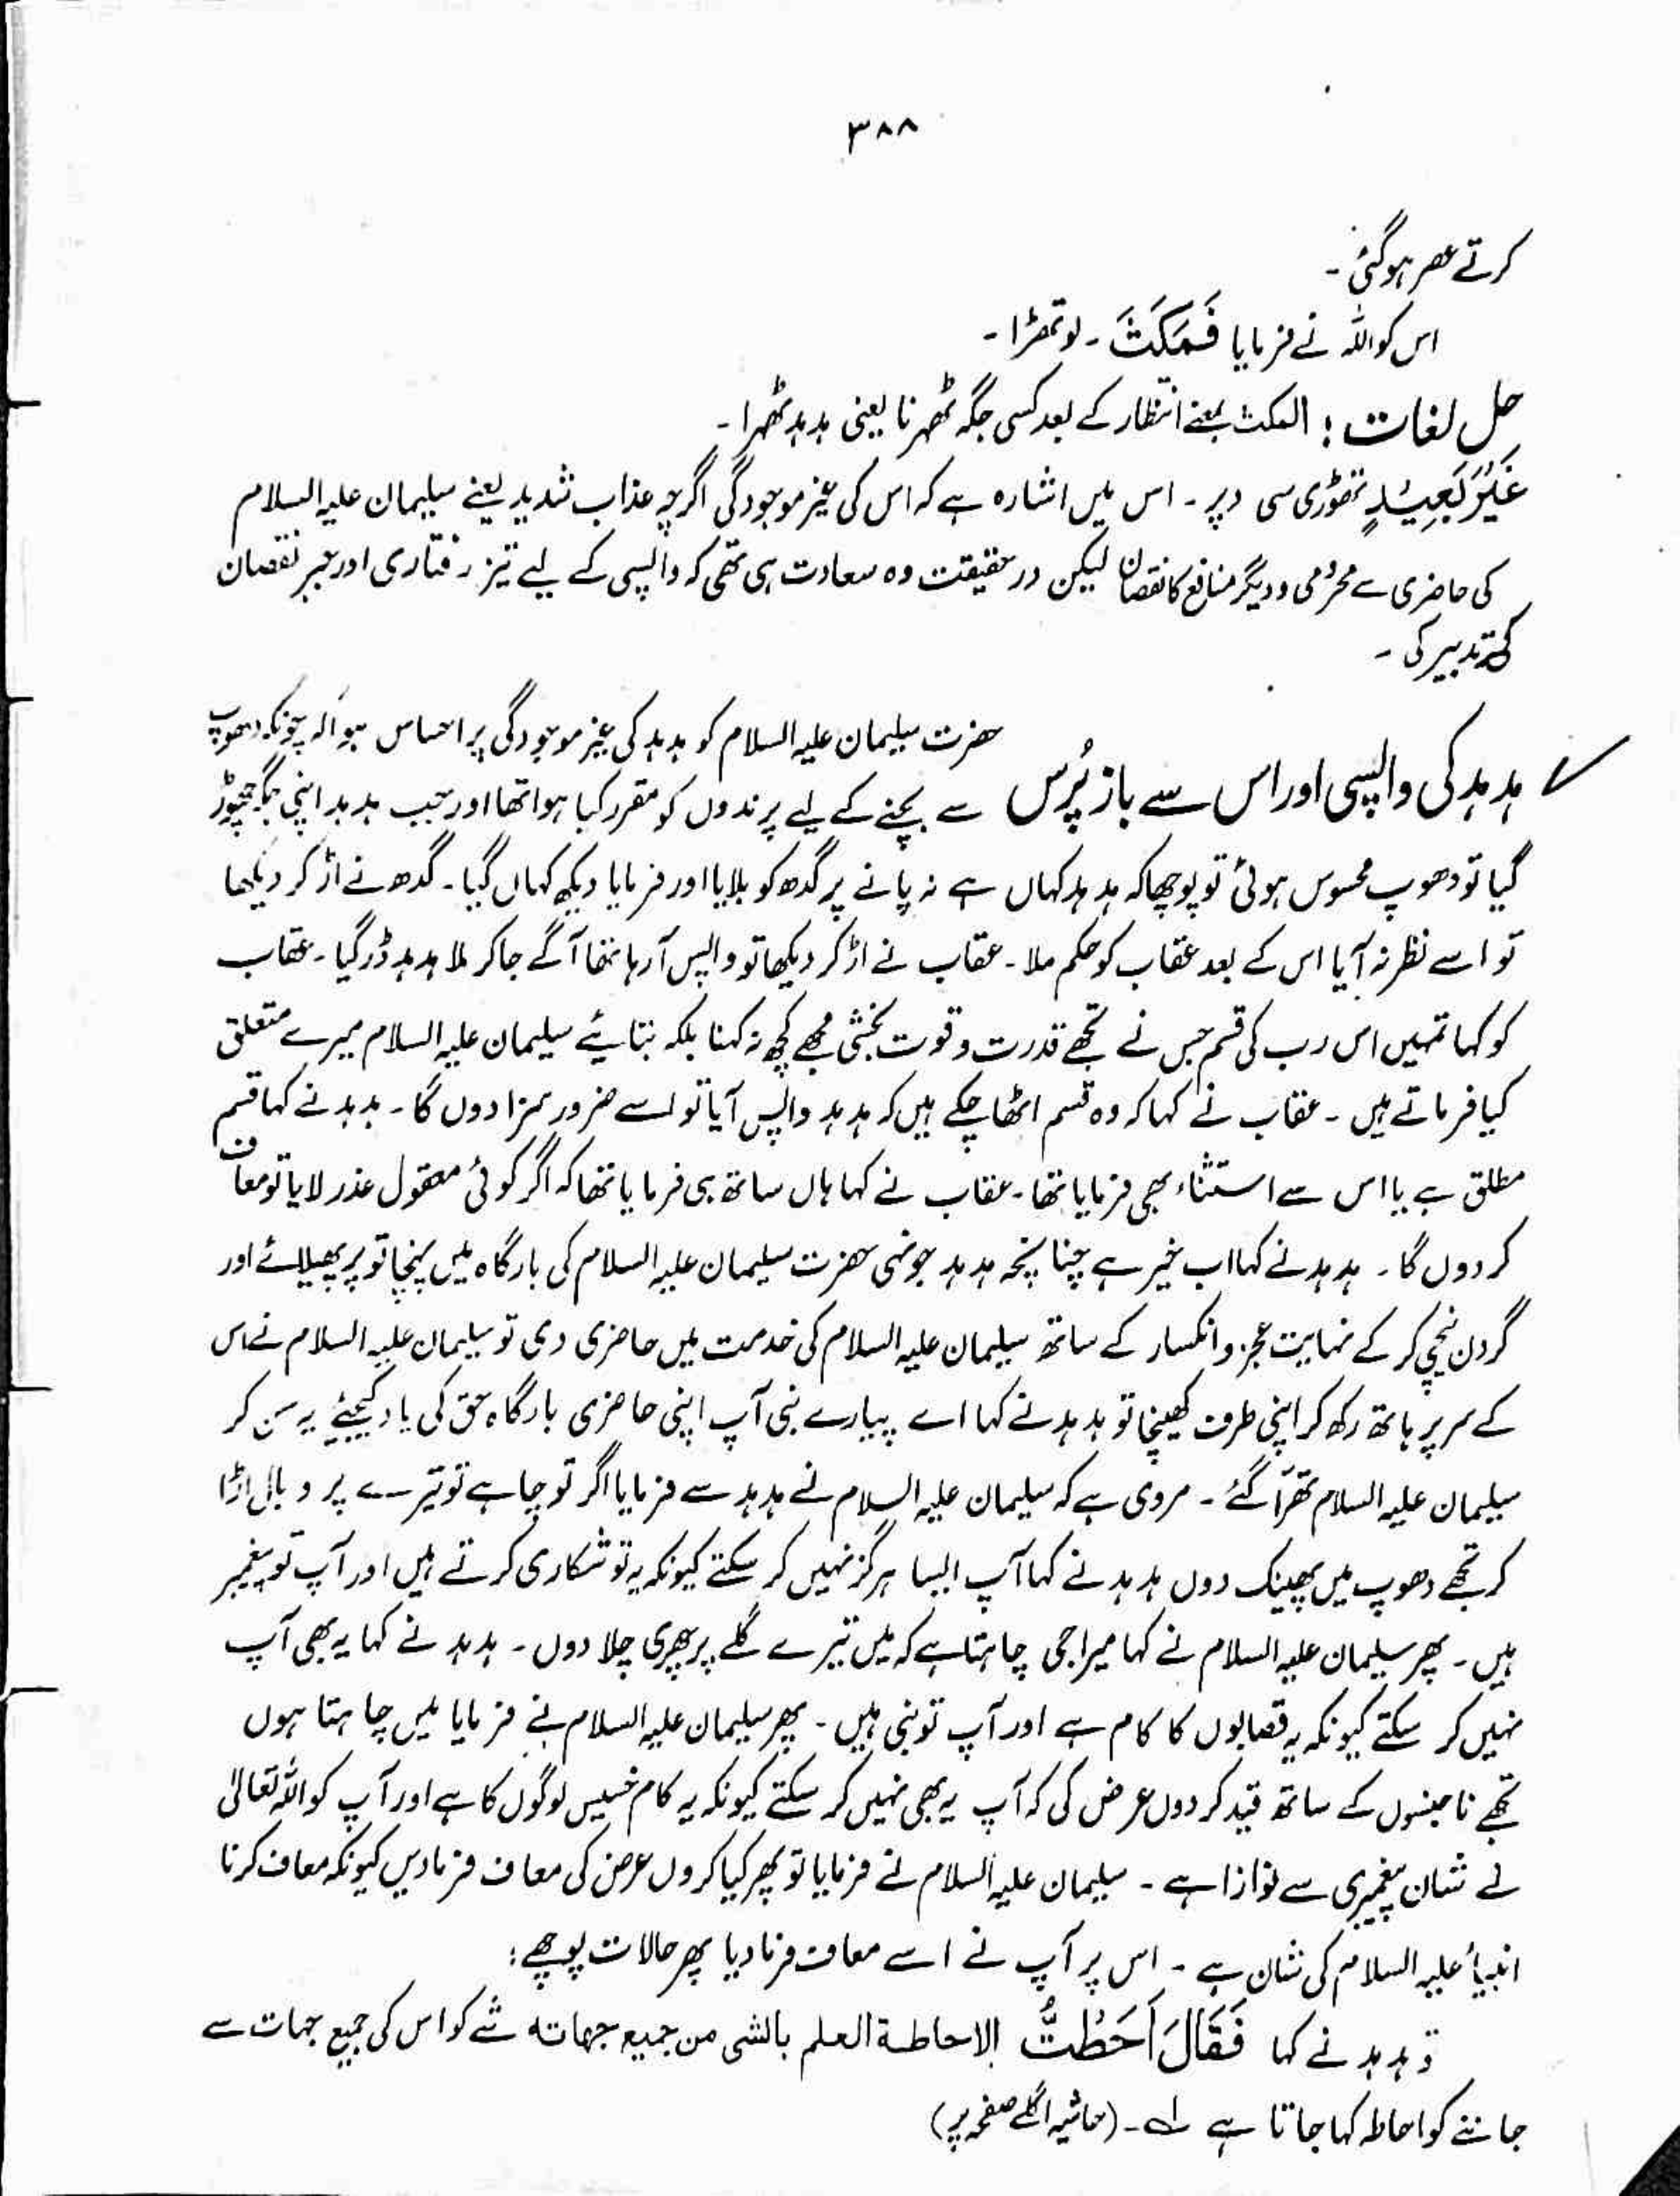 ۳۸۸
کرتے عصر ہوگئی۔
اس کو اللہ نے فرمایا فَمَكَثَ۔ تو ٹھہرا۔
حل لغات: المکث بمعنے انتظار کے بعد کسی جگہ ٹھہرنا یعنی ہدہد ٹھہرا۔
غَيْرَ بَعِيْدٍ تھوڑی سی دیر۔ اس میں اشارہ ہے کہ اس کی غیر موجودگی اگرچہ عذاب شدید یعنے سلیمان علیہ السلام
کی حاضری سے محرومی و دیگر منافع کا نقصان لیکن درحقیقت وہ سعادت ہی تھی کہ واپسی کے لیے تیز رفتاری اور جبر نقصان
کی تدبیر کی۔
ہدہد کی واپسی اور اس سے باز پُرس
حضرت سلیمان علیہ السلام کو ہدہد کی غیر موجودگی پر احساس ہوا کہ چونکہ دھوپ
سے بچنے کے لیے پرندوں کو مقرر کیا ہوا تھا اور جب ہدہد اپنی جگہ چھوڑ
گیا تو دھوپ محسوس ہوئی تو پوچھا کہ ہدہد کہاں ہے نہ پانے پر گدھ کو بلایا اور فرمایا دیکھ کہاں گیا۔ گدھ نے اڑ کر دیکھا
تو اسے نظر نہ آیا اس کے بعد عقاب کو حکم ملا۔ عقاب نے اڑ کر دیکھا تو واپس آ رہا تھا آگے جا کر ملا ہدہد ڈر گیا۔ عقاب
کو کہا تمہیں اس رب کی قسم جس نے تجھے قدرت و قوت بخشی مجھے کچھ نہ کہنا بلکہ بتائیے سلیمان علیہ السلام میرے متعلق
کیا فرماتے ہیں۔ عقاب نے کہا کہ وہ قسم اٹھا چکے ہیں کہ ہدہد واپس آیا تو اسے ضرور سزا دوں گا۔ ہدہد نے کہا قسم
مطلق ہے یا اس سے استثناء بھی فرمایا تھا۔ عقاب نے کہا ہاں ساتھ ہی فرمایا تھا کہ اگر کوئی معقول عذر لایا تو معاف
کر دوں گا۔ ہدہد نے کہا اب خیر ہے چنانچہ ہدہد جونہی حضرت سلیمان علیہ السلام کی بارگاہ میں پہنچا تو پر پھیلائے اور
گردن نیچی کر کے نہایت عجز و انکسار کے ساتھ سلیمان علیہ السلام کی خدمت میں حاضری دی تو سلیمان علیہ السلام نے اس
کے سر پر ہاتھ رکھ کر اپنی طرف کھینچا تو ہدہد نے کہا اے پیارے نبی آپ اپنی حاضری بارگاہ حق کی یاد کیجئے یہ سن کر
سلیمان علیہ السلام تھرّا گئے۔ مروی ہے کہ سلیمان علیہ السلام نے ہدہد سے فرمایا اگر تو چاہے تو تیرے پر و بال اڑا
کر تجھے دھوپ میں پھینک دوں ہدہد نے کہا آپ ایسا ہرگز نہیں کر سکتے کیونکہ یہ تو شکاری کرتے ہیں اور آپ تو پیغمبر
ہیں۔ پھر سلیمان علیہ السلام نے کہا میرا جی چاہتا ہے کہ میں تیرے گلے پر چھری چلا دوں۔ ہدہد نے کہا یہ بھی آپ
نہیں کر سکتے کیونکہ یہ قصابوں کا کام ہے اور آپ تو نبی ہیں۔ پھر سلیمان علیہ السلام نے فرمایا میں چاہتا ہوں
تجھے ناجنسوں کے ساتھ قید کر دوں عرض کی کہ آپ یہ بھی نہیں کر سکتے کیونکہ یہ کام خسیس لوگوں کا ہے اور آپ کو اللہ تعالیٰ
نے شان پیغمبری سے نوازا ہے۔ سلیمان علیہ السلام نے فرمایا تو پھر کیا کروں عرض کی معاف فرما دیں کیونکہ معاف کرنا
انبیأ علیہ السلام کی شان ہے۔ اس پر آپ نے اسے معاف فرما دیا پھر حالات پوچھے:
تو ہدہد نے کہا فَقَالَ اَحَطْتُّ الاحاطة العلم بالشی من جمیع جهاته شے کو اس کی جمیع جہات سے
جاننے کو احاطہ کہا جاتا ہے لے۔ (حاشیہ اگلے صفحہ پر)